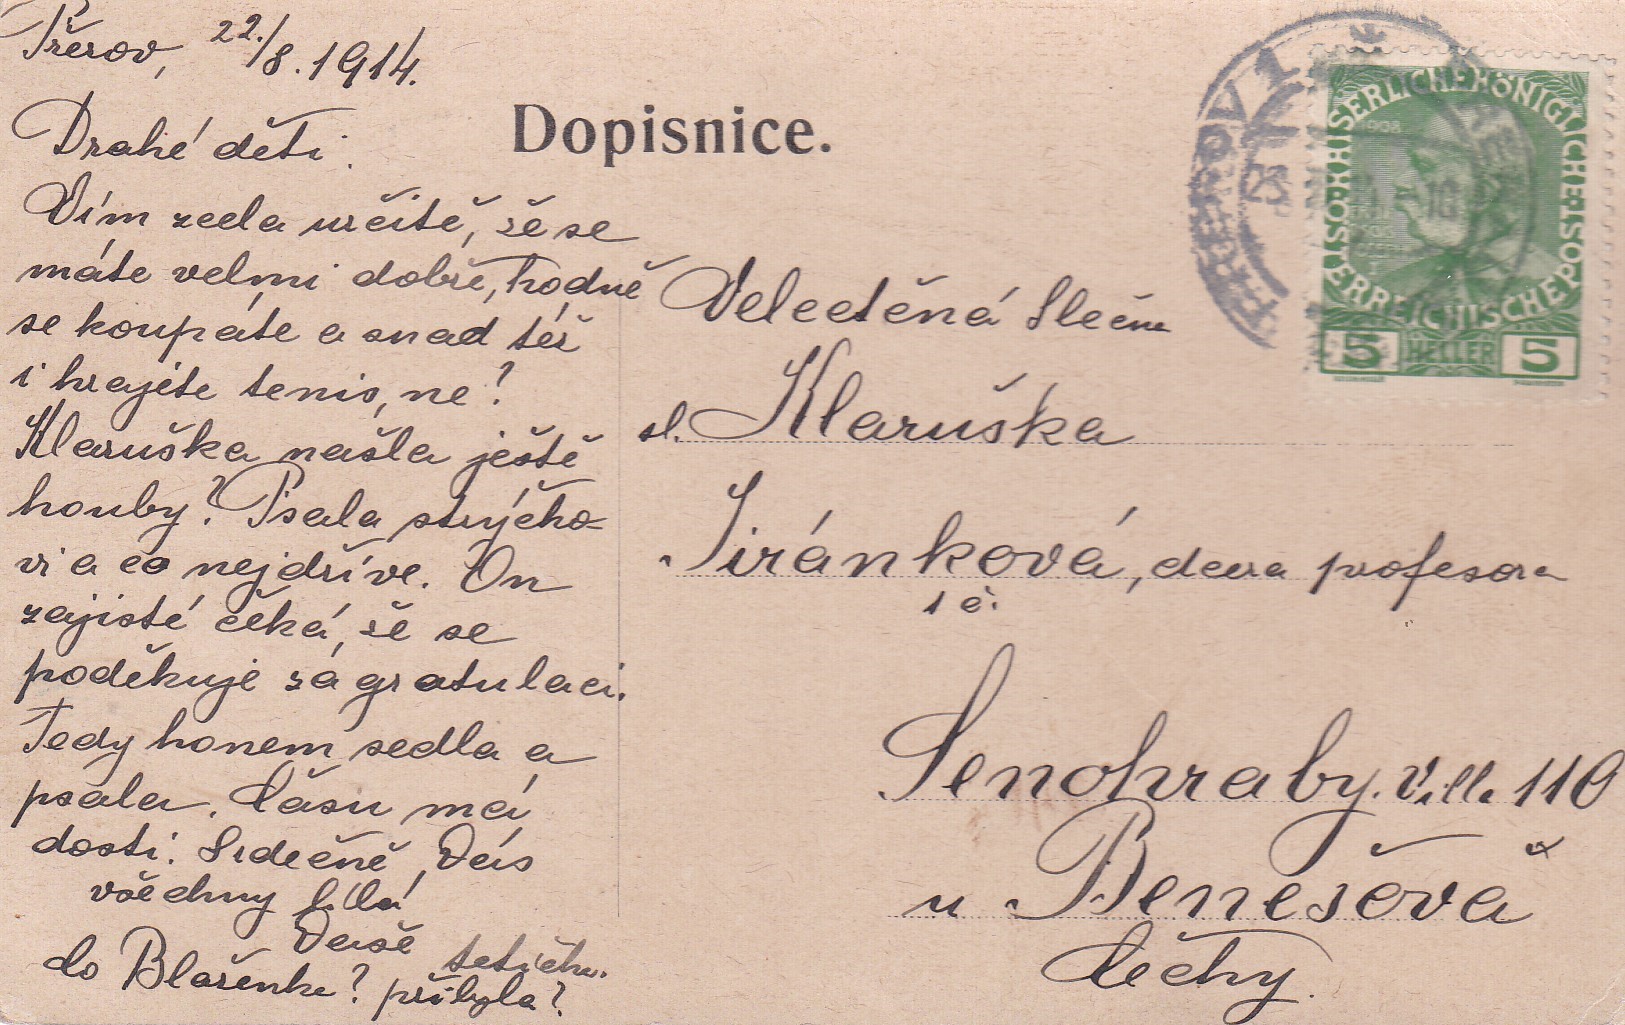 Přerov, 22./8. 1914.
Drahé děti.
Vím zcela určitě, že se
máte velmi dobře, hodně
se koupáte a snad též
i hrajete tenis, ne?
Klaruška našla ještě
houby? Psala strýčko-
vi a co nejdříve. On
zajisté čeká, že se
poděkuje za gratulaci.
Tedy honem sedla a
psala. Času má
dosti. Srdečně Vás
všechny líbá
Vaše tetička.
do Blaženka? přibyla?
Dopisnice.
Velectěná Slečna
sl. Klaruška
Jiránková, dcera profesora
Senohraby. Villa 110
u Benešova
Čechy.
PREROV 1
KAISERLICHE KÖNIGLICHE ÖSTERREICHISCHE POST
1908
5 HELLER 5